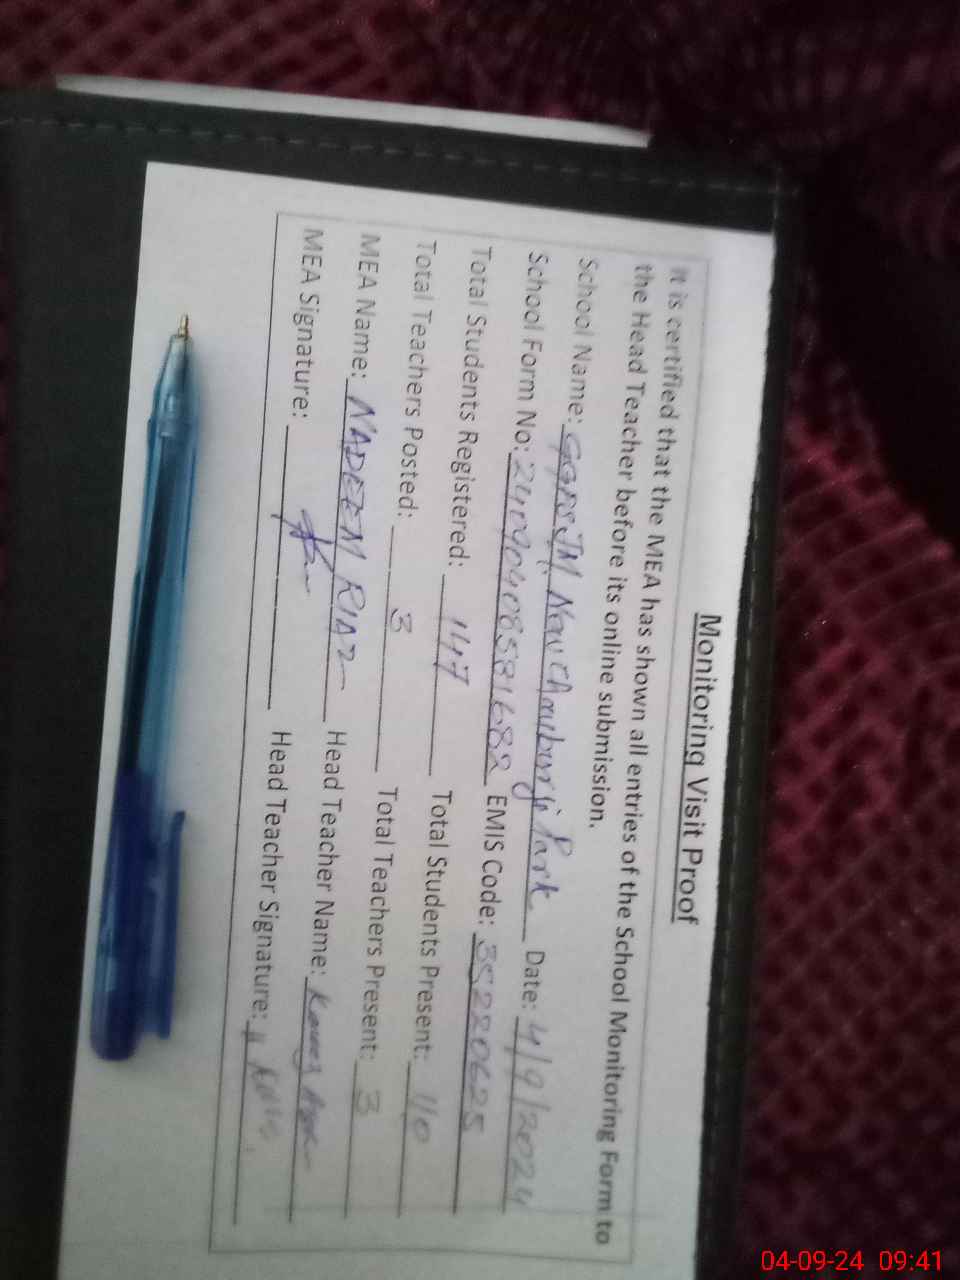 Monitoring Visit Proof
It is certified that the MEA has shown all entries of the School Monitoring Form to
the Head Teacher before its online submission.
School Name: Chauburji Park Date: 4/9/2024
School Form No: EMIS Code: 35220625
Total Students Registered: 147 Total Students Present: 110
Total Teachers Posted: 3 Total Teachers Present: 3
MEA Name: NADEEM RIAZ Head Teacher Name:
MEA Signature: Head Teacher Signature:
04-09-24 09:41